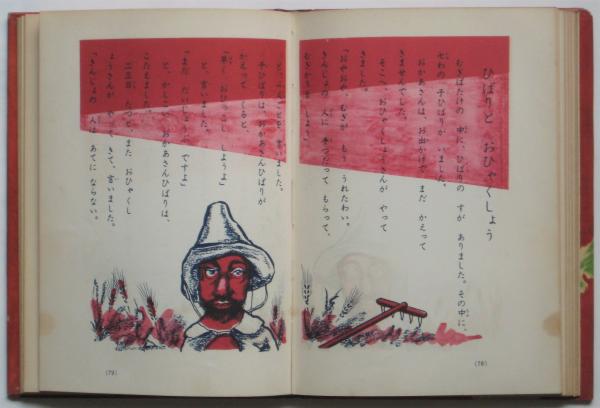 ひばりと おひゃくしょう
むぎばたけの 中に、ひばりの すが ありました。その中に、
七わの 子ひばりが いました。
おかあさんは、お出かけで、まだ かえって
きませんでした。
そこへ、おひゃくしょうさんが やって
きました。
「おやおや、むぎが もう うれたわい。
きんじょの 人に 手つだって もらって、
むぎかりを しよう」
と、ひとりごとを 言いました。
子ひばりは、おかあさんひばりが
かえって くると、
「早く おひっこし しようよ」
と、言いました。
「まだ だいじょうぶ ですよ」
と、かしこい おかあさんひばりは、
こたえました。
二三日 たつと、また おひゃくし
ょうさんが やって きて、言いました。
「きんじょの 人は あてに ならない。
(78)
(79)